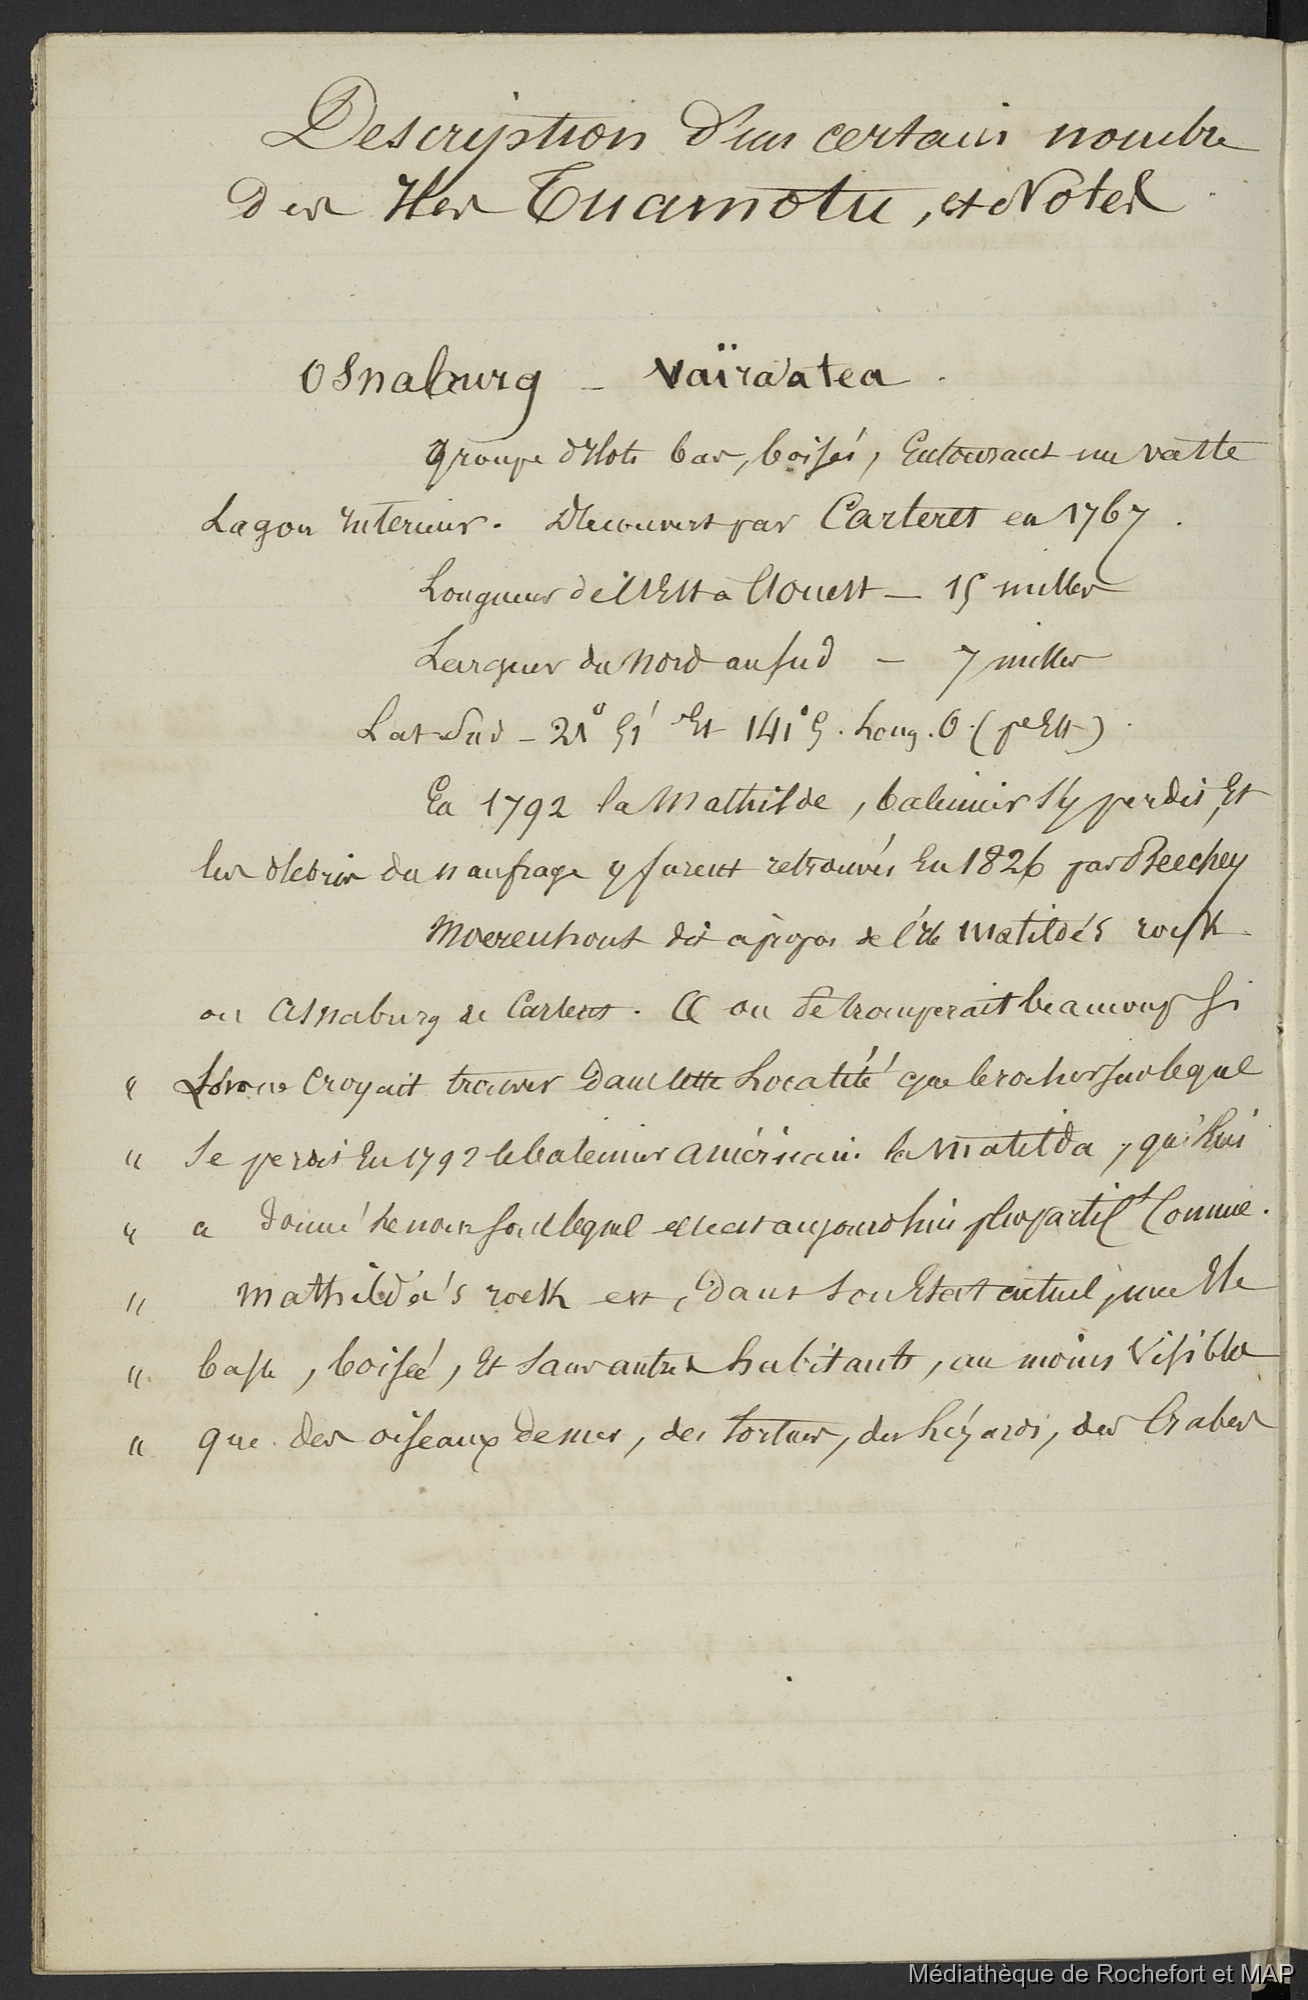 Description d'un certain nombre
des Iles Tuamotu, et Notes
Osnaburg – Vaïraatea.
Groupe d'Ilots bas, boisés, Entourant un vaste
Lagon Interieur. Découvert par Carteret en 1767.
Longueur de l'Est à l'Ouest – 15 milles
Largeur du Nord au Sud – 7 milles
Lat Sud – 21° 51' Et 141° 5. Long. O. (pte Est)
En 1792 la Mathilde, baleinier s'y perdit, Et
les débris du naufrage y furent retrouvés En 1826 par Beechey
Moerenhout dit à propos de l'Ile Matildé's rock
ou Osnaburg de Carteret. « on se tromperait beaucoup si
" L'on ne croyait trouver dans cette Localité que le rocher sur lequel
" Se perdit En 1792 le baleinier américain la Matilda, qui lui
" a donné le nom sous lequel elle est aujourd'hui plus partict Connue.
" Mathilda's rock est, dans son Etat actuel, une Ile
" basse, boisée, Et sans autres habitants, au moins Visibles
" que des oiseaux de mer, des tortues, des Lézards, des Crabes
Médiathèque de Rochefort et MAP